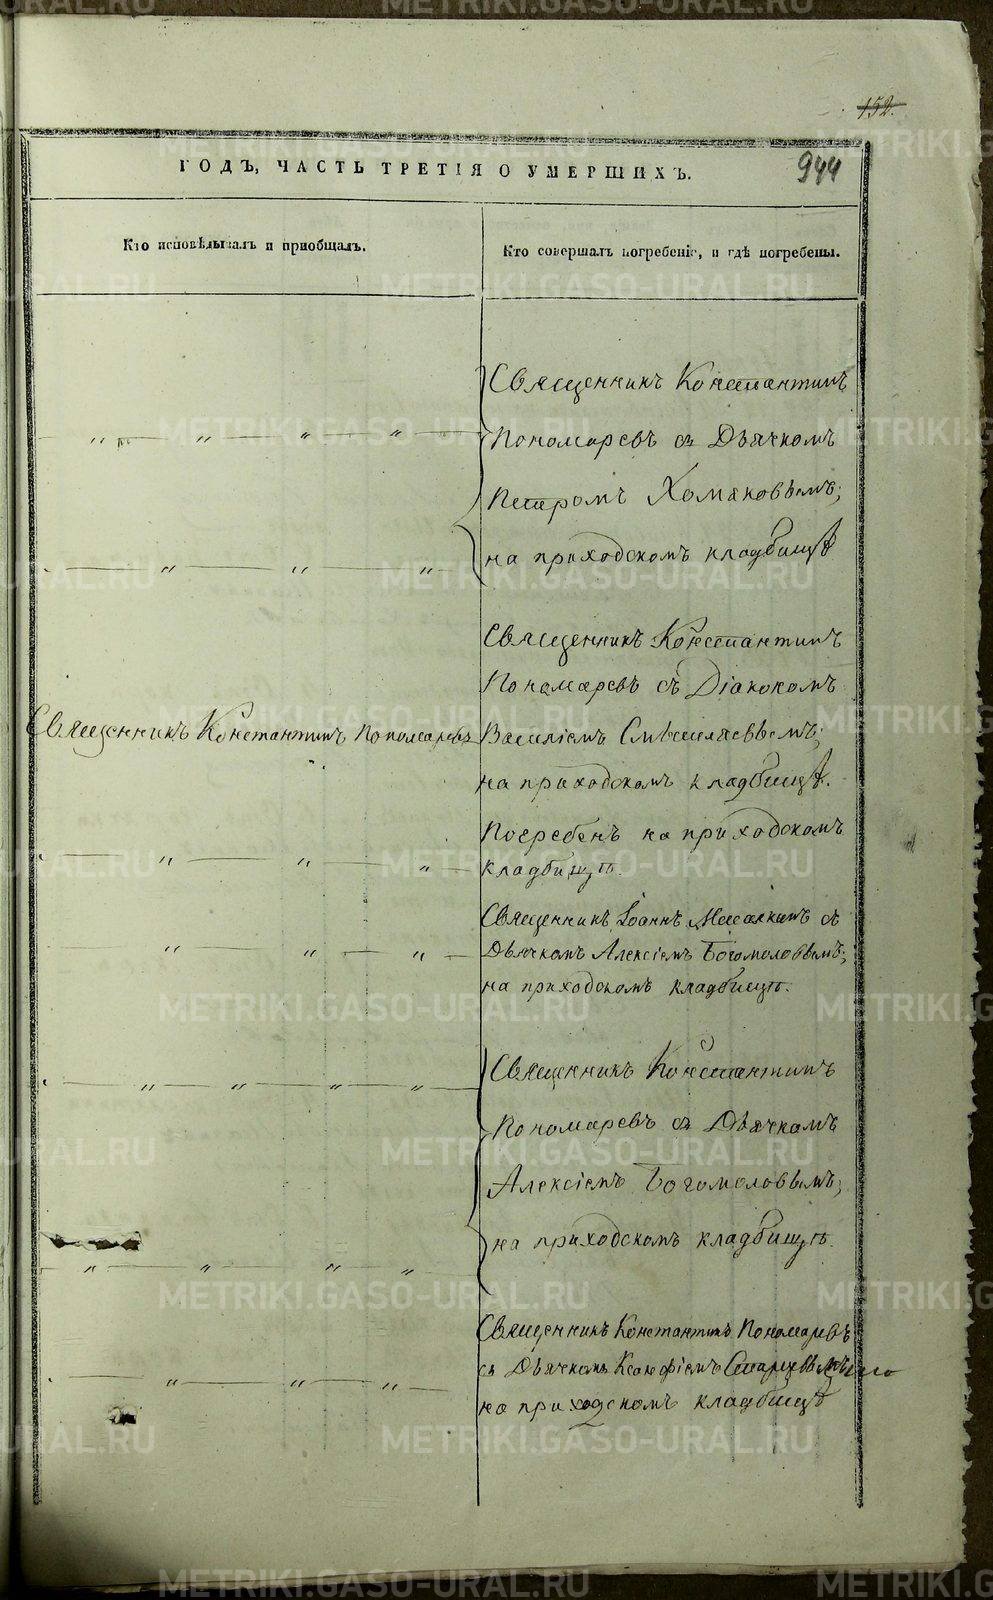 152.
944
ГОДЪ, ЧАСТЬ ТРЕТІЯ О УМЕРШИХЪ.
Кто исповѣдывалъ и пріобщалъ.
Кто совершалъ погребеніе, и гдѣ погребены.
Священникъ Константинъ
Пономаревъ съ Дьячкомъ
Петромъ Хомяковымъ;
на приходскомъ кладбищѣ
Священникъ Константинъ
Пономаревъ съ Діакономъ
Священникъ Константинъ Пономаревъ
Василіемъ
на приходскомъ кладбищѣ.
Погребенъ на приходскомъ
кладбищѣ.
Священникъ Іоаннъ съ
Дьячкомъ Алексіемъ Богомоловымъ;
на приходскомъ кладбищѣ.
Священникъ Константинъ
Пономаревъ съ Дьячкомъ
Алексіемъ Богомоловымъ;
на приходскомъ кладбищѣ.
Священникъ Константинъ Пономаревъ
съ Дьячкомъ Ксанфіемъ
на приходскомъ кладбищѣ
METRIKI.GASO-URAL.RU